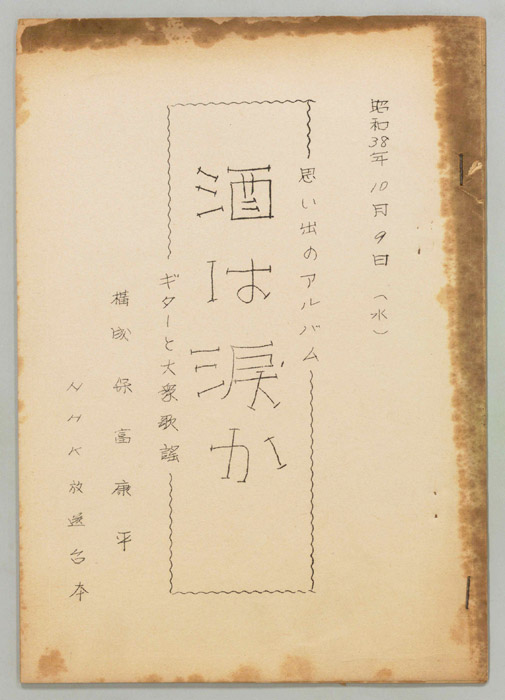 昭和38年10月9日（水）
思い出のアルバム
酒は涙か
ギターと大衆歌謡
構成 保富康平
NHK放送台本